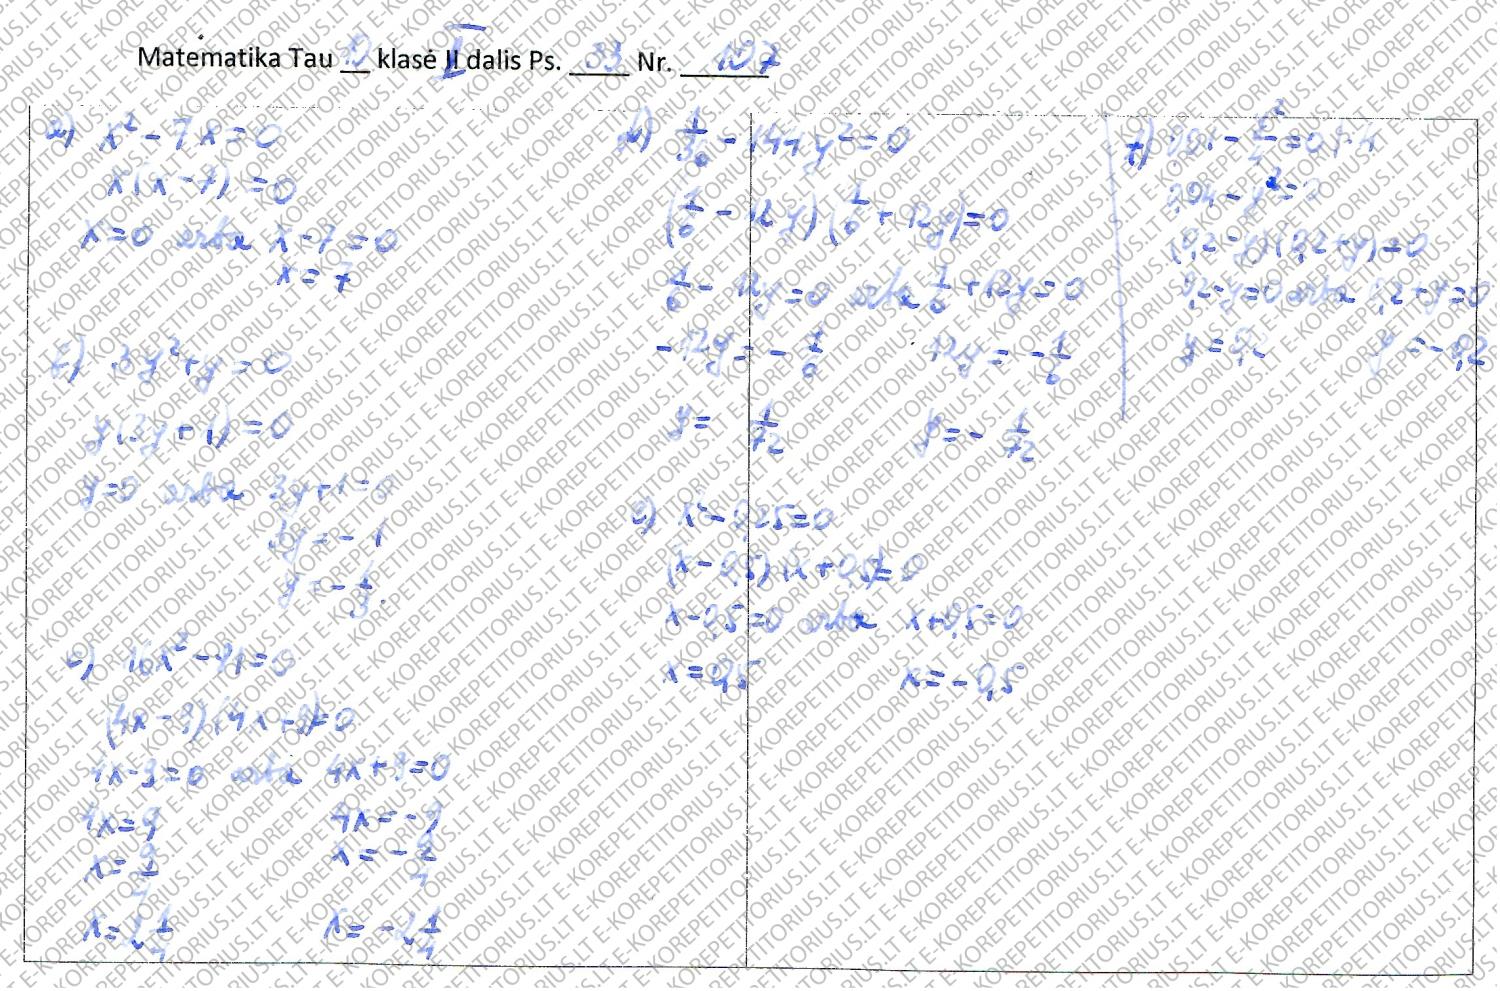 Matematika Tau 9 klasė II dalis Ps. 33 Nr. 107
a) x² - 7x = 0
x(x - 7) = 0
x = 0 arba x - 7 = 0
x = 7
3y² + y = 0
y(3y + 1) = 0
y = 0 arba 3y + 1 = 0
3y = - 1
y = - 1/3
c) 16x² - 81 = 0
(4x - 9)(4x + 9) = 0
4x - 9 = 0 arba 4x + 9 = 0
4x = 9 4x = - 9
x = 9/4 x = - 9/4
x = 2 1/4 x = - 2 1/4
1/36 - 144y² = 0
(1/6 - 12y)(1/6 + 12y) = 0
1/6 - 12y = 0 arba 1/6 + 12y = 0
- 12y = - 1/6 12y = - 1/6
y = 1/72 y = - 1/72
e) x² - 0,25 = 0
(x - 0,5)(x + 0,5) = 0
x - 0,5 = 0 arba x + 0,5 = 0
x = 0,5 x = - 0,5
f) 0,01 - y²/4 = 0 | · 4
0,04 - y² = 0
(0,2 - y)(0,2 + y) = 0
0,2 - y = 0 arba 0,2 + y = 0
y = 0,2 y = - 0,2